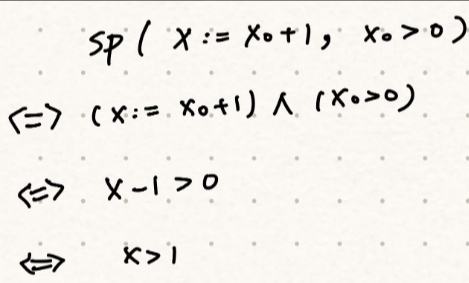 sp ( x := x₀+1, x₀ > 0 )
<=> (x := x₀+1) ∧ (x₀>0)
<=> x-1 > 0
<=> x > 1